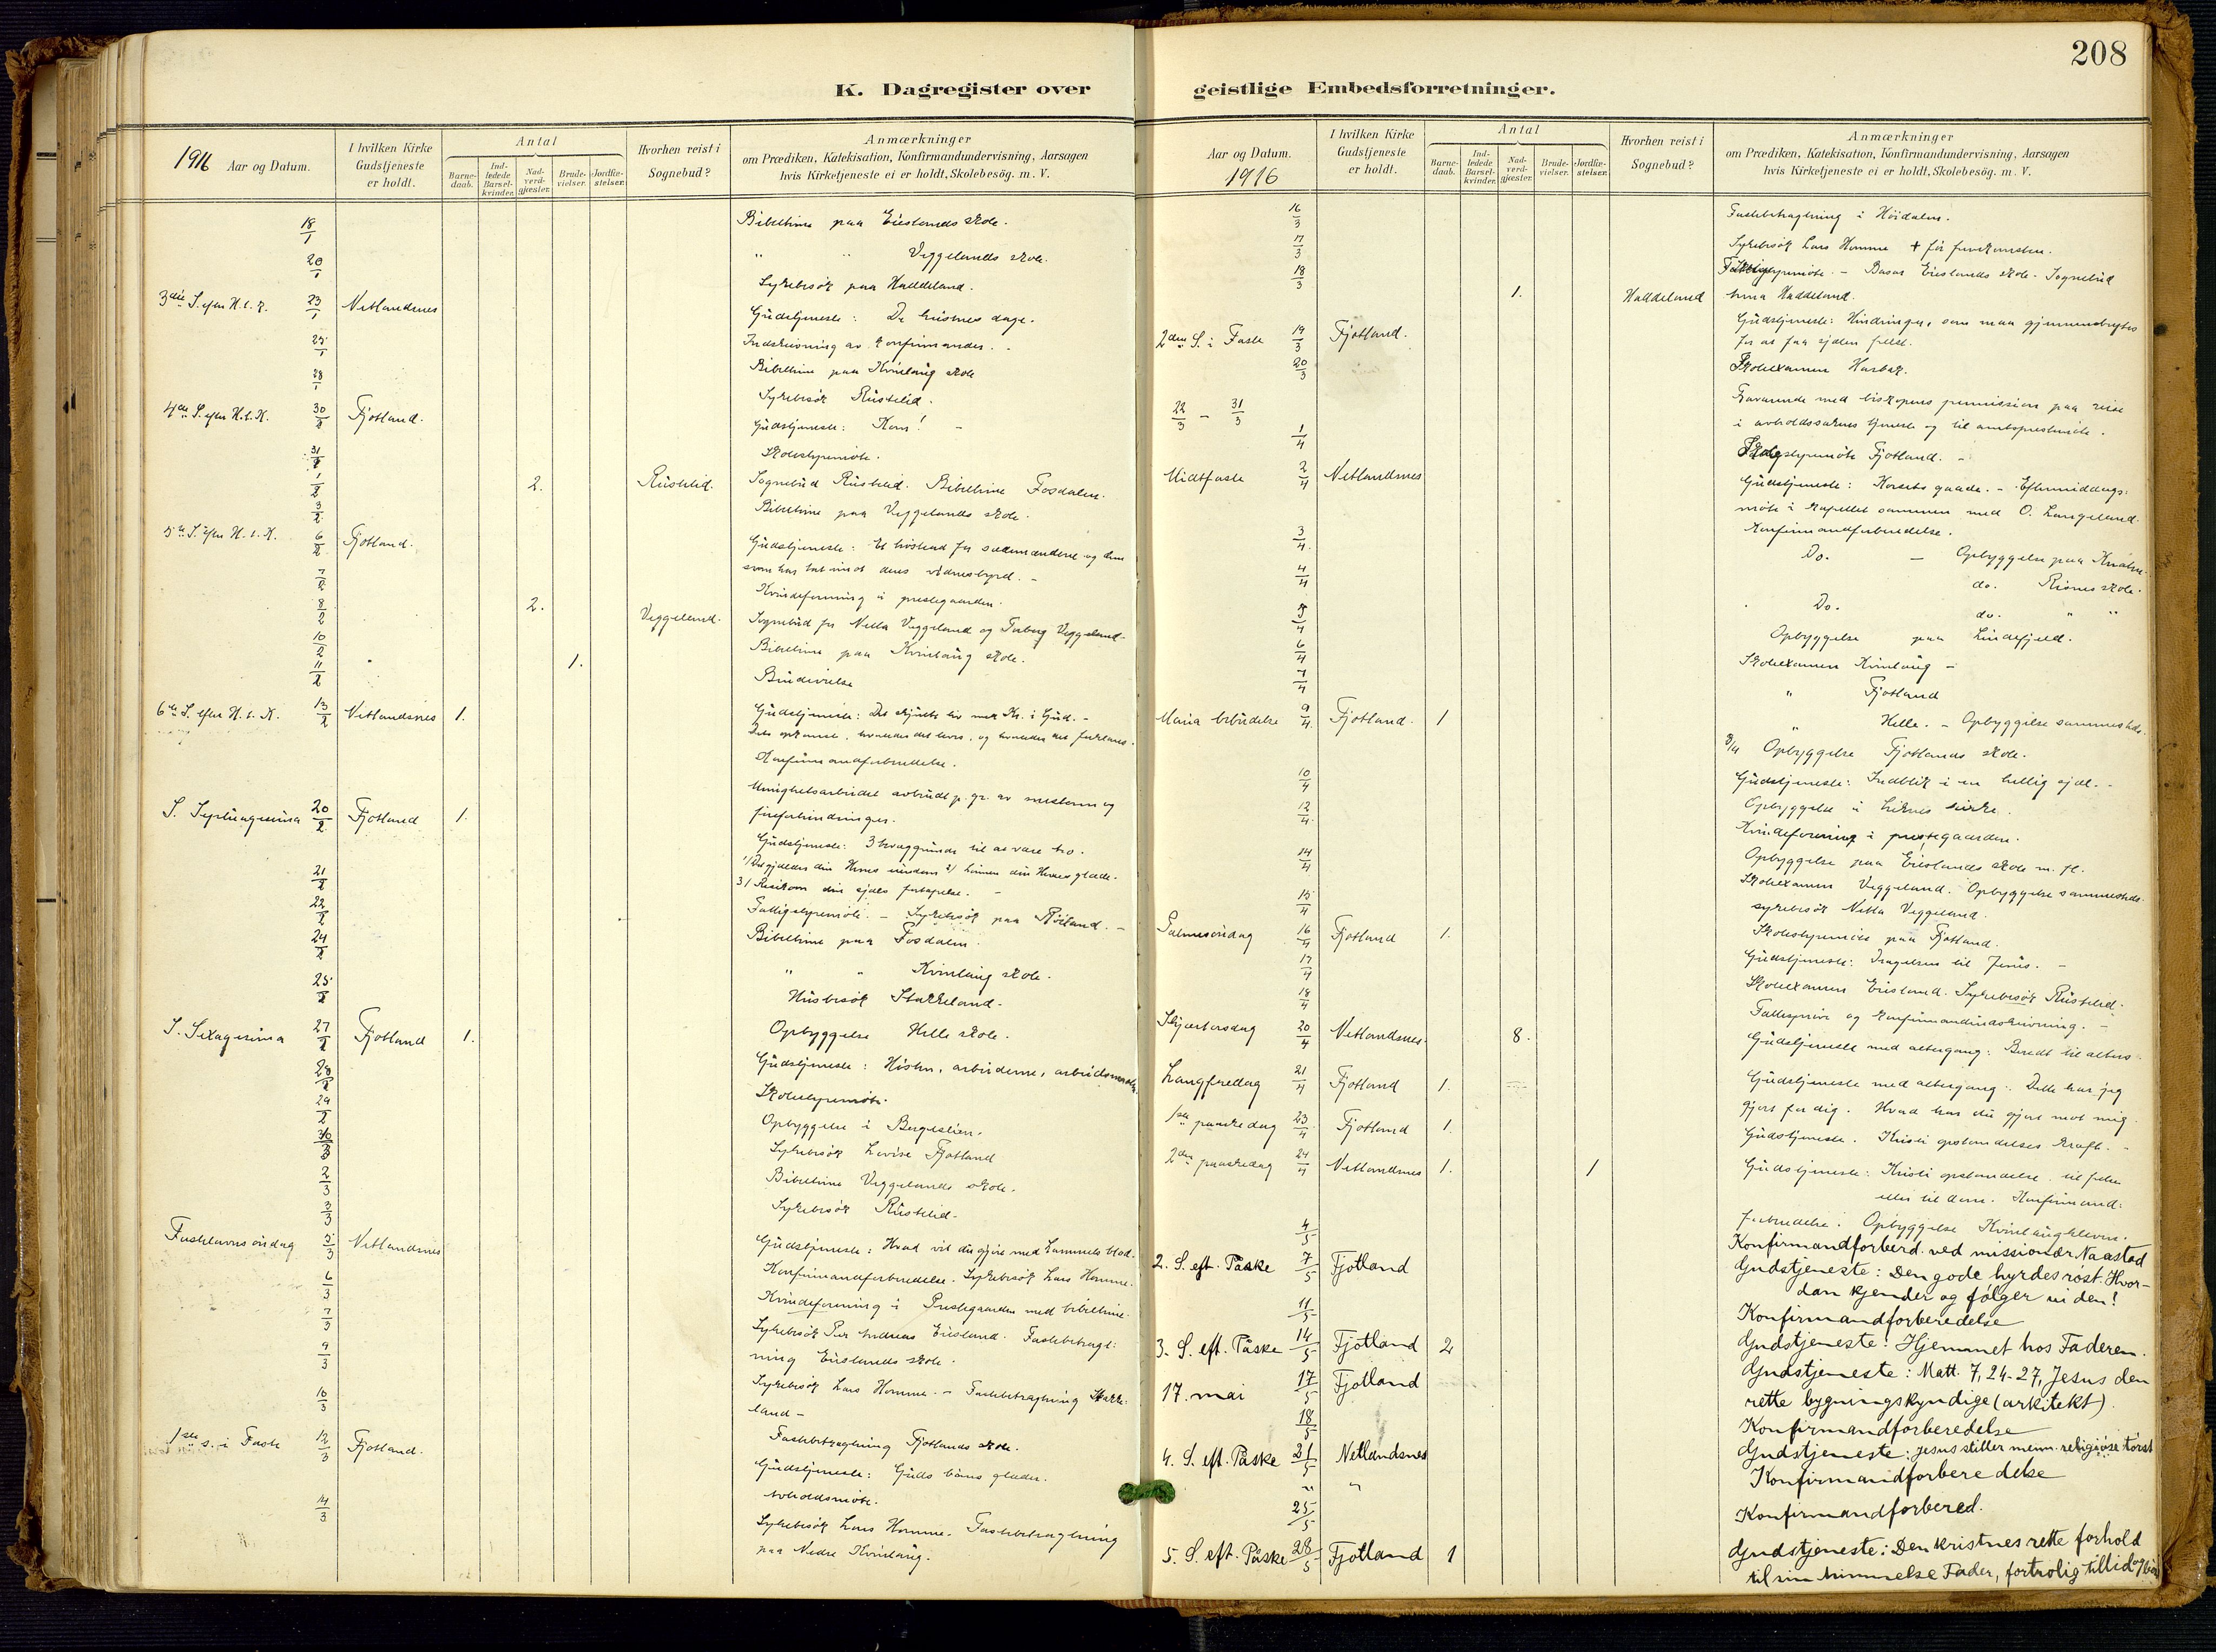 208
K. Dagregister over
geistlige Embedsforretninger.
1916 Aar og Datum.
I hvilken Kirke Gudstjeneste er holdt.
Antal
Barnedaab.
Indledede Barselkvinder.
Nadverdgjæster.
Brudevielser.
Jordfæstelser.
Hvorhen reist i Sognebud?
Anmærkninger
om Prædiken, Katekisation, Konfirmandundervisning, Aarsagen
hvis Kirketjeneste ei er holdt, Skolebesög. m. V.
18/1 Bibeltime paa Eieslands skole.
20/1 " " Veggelands skole.
Sykebesök paa Haddeland.
3die S. efter H. t. K. 23/1 Netlandsnes Gudstjeneste: De kristnes dage.
25/1 Indskrivning av konfirmander.
28/1 Bibeltime paa Kvinlaug skole
Sykebesök Rustelid.
4de S. efter H.t.K. 30/1 Fjotland. Gudstjeneste: Kom! -
31/1 Skolestyremöte.
1/2 2. Rustelid. Sognebud Rustelid. Bibeltime Fosdalen.
3/2 Bibeltime paa Veggelands skole.
5te S. efter H. t. K. 6/2 Fjotland. Gudstjeneste: Et höstbud for sædemændene og dem
som har tat imot deres vidnesbyrd. -
7/2 Kvindeforening i prestegaarden.
8/2 2. Veggeland. Sognebud for Netta Veggeland og Torborg Veggeland.
10/2 Bibeltime paa Kvinlaug skole.
11/2 1. Brudevielse
6te S. efter H. t. K. 13/2 Netlandsnes 1. Gudstjeneste: Det skjulte liv med Kr. i Gud. -
Dets opkomst, hvorledes det leves, og hvorledes det forklares.
Konfirmandforberedelse.
Menighetsarbeidet avbrudt p. gr. av snestorm og
föreforhindringer.
S. Septuagesima 20/2 Fjotland 1. Gudstjeneste: 3 bevæggrunde til at være tro.
1/ Det gjælder din Herres eiendom 2/ Lönnen din Herres glæde.
3/ Risikoen din sjæls fortapelse. -
21/2 Fattigstyremöte. - Sykebesök paa Röiland. -
22/2 Bibeltime paa Fosdalen.
24/2 " " Kvinlaug skole.
Husbesök Starkeland.
25/2 Opbyggelse Helle skole.
S. Sexagesima 27/2 Fjotland 1. Gudstjeneste: Hösten, arbeiderne, arbeidsmaaten.
28/2 Skolestyremöte.
29/2 Opbyggelse i Bergeslien.
Sykebesök Lovise Fjotland
2/3 Bibeltime Veggelands skole.
3/3 Sykebesök Rustelid.
Fastelavns söndag 5/3 Netlandsnes Gudstjeneste: Hvad vil du gjöre med Lammets blod.
6/3 Konfirmandforberedelse. Sykebesök Lars Homme.
7/3 Kvindeforening i Prestegaarden med bibeltime.
Sykebesök Per Andreas Eiesland. Fastebetragt:
9/3 ning Eieslands skole.
10/3 Sykebesök Lars Homme. - Fastebetragtning Starke:
land -
Fastebetragtning Fjotlands skole.
1ste s. i Faste 12/3 Fjotland. Gudstjeneste: Guds barns glæder.
Avholdsmöte.
14/3 Sykebesök Lars Homme. Fastebetragtning
paa Nedre Kvinlaug.
Aar og Datum.
1916
I hvilken Kirke Gudstjeneste er holdt.
Antal
Barnedaab.
Indledede Barselkvinder.
Nadverdgjæster.
Brudevielser.
Jordfæstelser.
Hvorhen reist i Sognebud?
Anmærkninger
om Prædiken, Katekisation, Konfirmandundervisning, Aarsagen
hvis Kirketjeneste ei er holdt, Skolebesög. m. V.
16/3 Fastebetragtning i Höidalen.
17/3 Sykebesök Lars Homme + för fremkomsten.
18/3 Fattigstyremöte. - Basar Eieslands skole. Sognebud
1. Haddeland Anna Haddeland.
2den S. i Faste 19/3 Fjotland. Gudstjeneste: Hindringer, som maa gjennembrytes
for at faa sjælen frelst.
20/3 Skoleexamen Husbæk.
22/3 - 31/3 Fraværende med biskopens permission paa reise
i avholdssakens tjeneste og til amtsprestemöte.
1/4 Skolestyremöte Fjotland. -
Midtfaste 2/4 Netlandsnes Gudstjeneste: Korsets gaade. - Eftermiddags:
möte i kapellet sammen med O. Langeland.
3/4 Konfirmandforberedelse.
Do. - Opbyggelse paa Knaben.
4/4 do. Risnes skole.
Do. do. " "
5/4 Opbyggelse paa Lindefjeld.
6/4 Skoleexamen Kvinlaug -
7/4 " Fjotland
" Helle. - Opbyggelse sammesteds.
8/4 Opbyggelse Fjotlands skole.
Maria bebudelse 9/4 Fjotland. 1 Gudstjeneste: Indblik i en hellig sjæl. -
10/4 Opbyggelse i Liknes kirke.
12/4 Kvindeforening i prestegaarden.
Opbyggelse paa Eieslands skole m. fl.
14/4 Skoleexamen Veggeland. Opbyggelse sammesteds.
sykebesök Netta Veggeland.
15/4 Skolestyremöte paa Fjotland.
Palmesöndag 16/4 Fjotland 1. Gudstjeneste: Dragelsen til Jesus. -
17/4 Skoleexamen Eiesland. Sykebesök Rustelid.
18/4 Fællespröve og konfirmandindskrivning. -
Skjærtorsdag 20/4 Netlandsnes. 8. Gudstjeneste med altergang: Beredt til alters
Langfredag 21/4 Fjotland 1. Gudstjeneste med altergang: Dette har jeg
gjort for dig. Hvad har du gjort mot mig.
1ste paaskedag 23/4 Fjotland 1. Gudstjeneste. Kristi opstandelses kraft. -
2den paaskedag 24/4 Netlandsnes 1. 1 Gudstjeneste: Kristi opstandelse til frelse
eller til dom. Konfirmand:
forberedelse. Opbyggelse Kvinlaugkleven.
4/5 Konfirmandforbered. ved missionær Naastad
2. S. eft. Påske 7/5 Fjotland Gudstjeneste: Den gode hyrdes röst. Hvor-
dan kjender og fölger vi den!
11/5 Konfirmandforberedelse
3. S. eft. Påske 14/5 Fjotland 2 Gudstjeneste: Hjemmet hos Faderen.
17. mai 17/5 Fjotland Gudstjeneste: Matt. 7, 24-27, Jesus den
rette bygningskyndige (arkitekt).
18/5 Konfirmandforberedelse
4. S. eft. Påske 21/5 Netlandsnes Gudstjeneste: Jesus stiller menn. religiöse törst
" " Konfirmandforberedelse
25/5 Konfirmandforbered.
5. S. eft. Påske 28/5 Fjotland 1 Gudstjeneste: Den kristnes rette forhold
til sin himmelske Fader, fortrolig tillid og bön